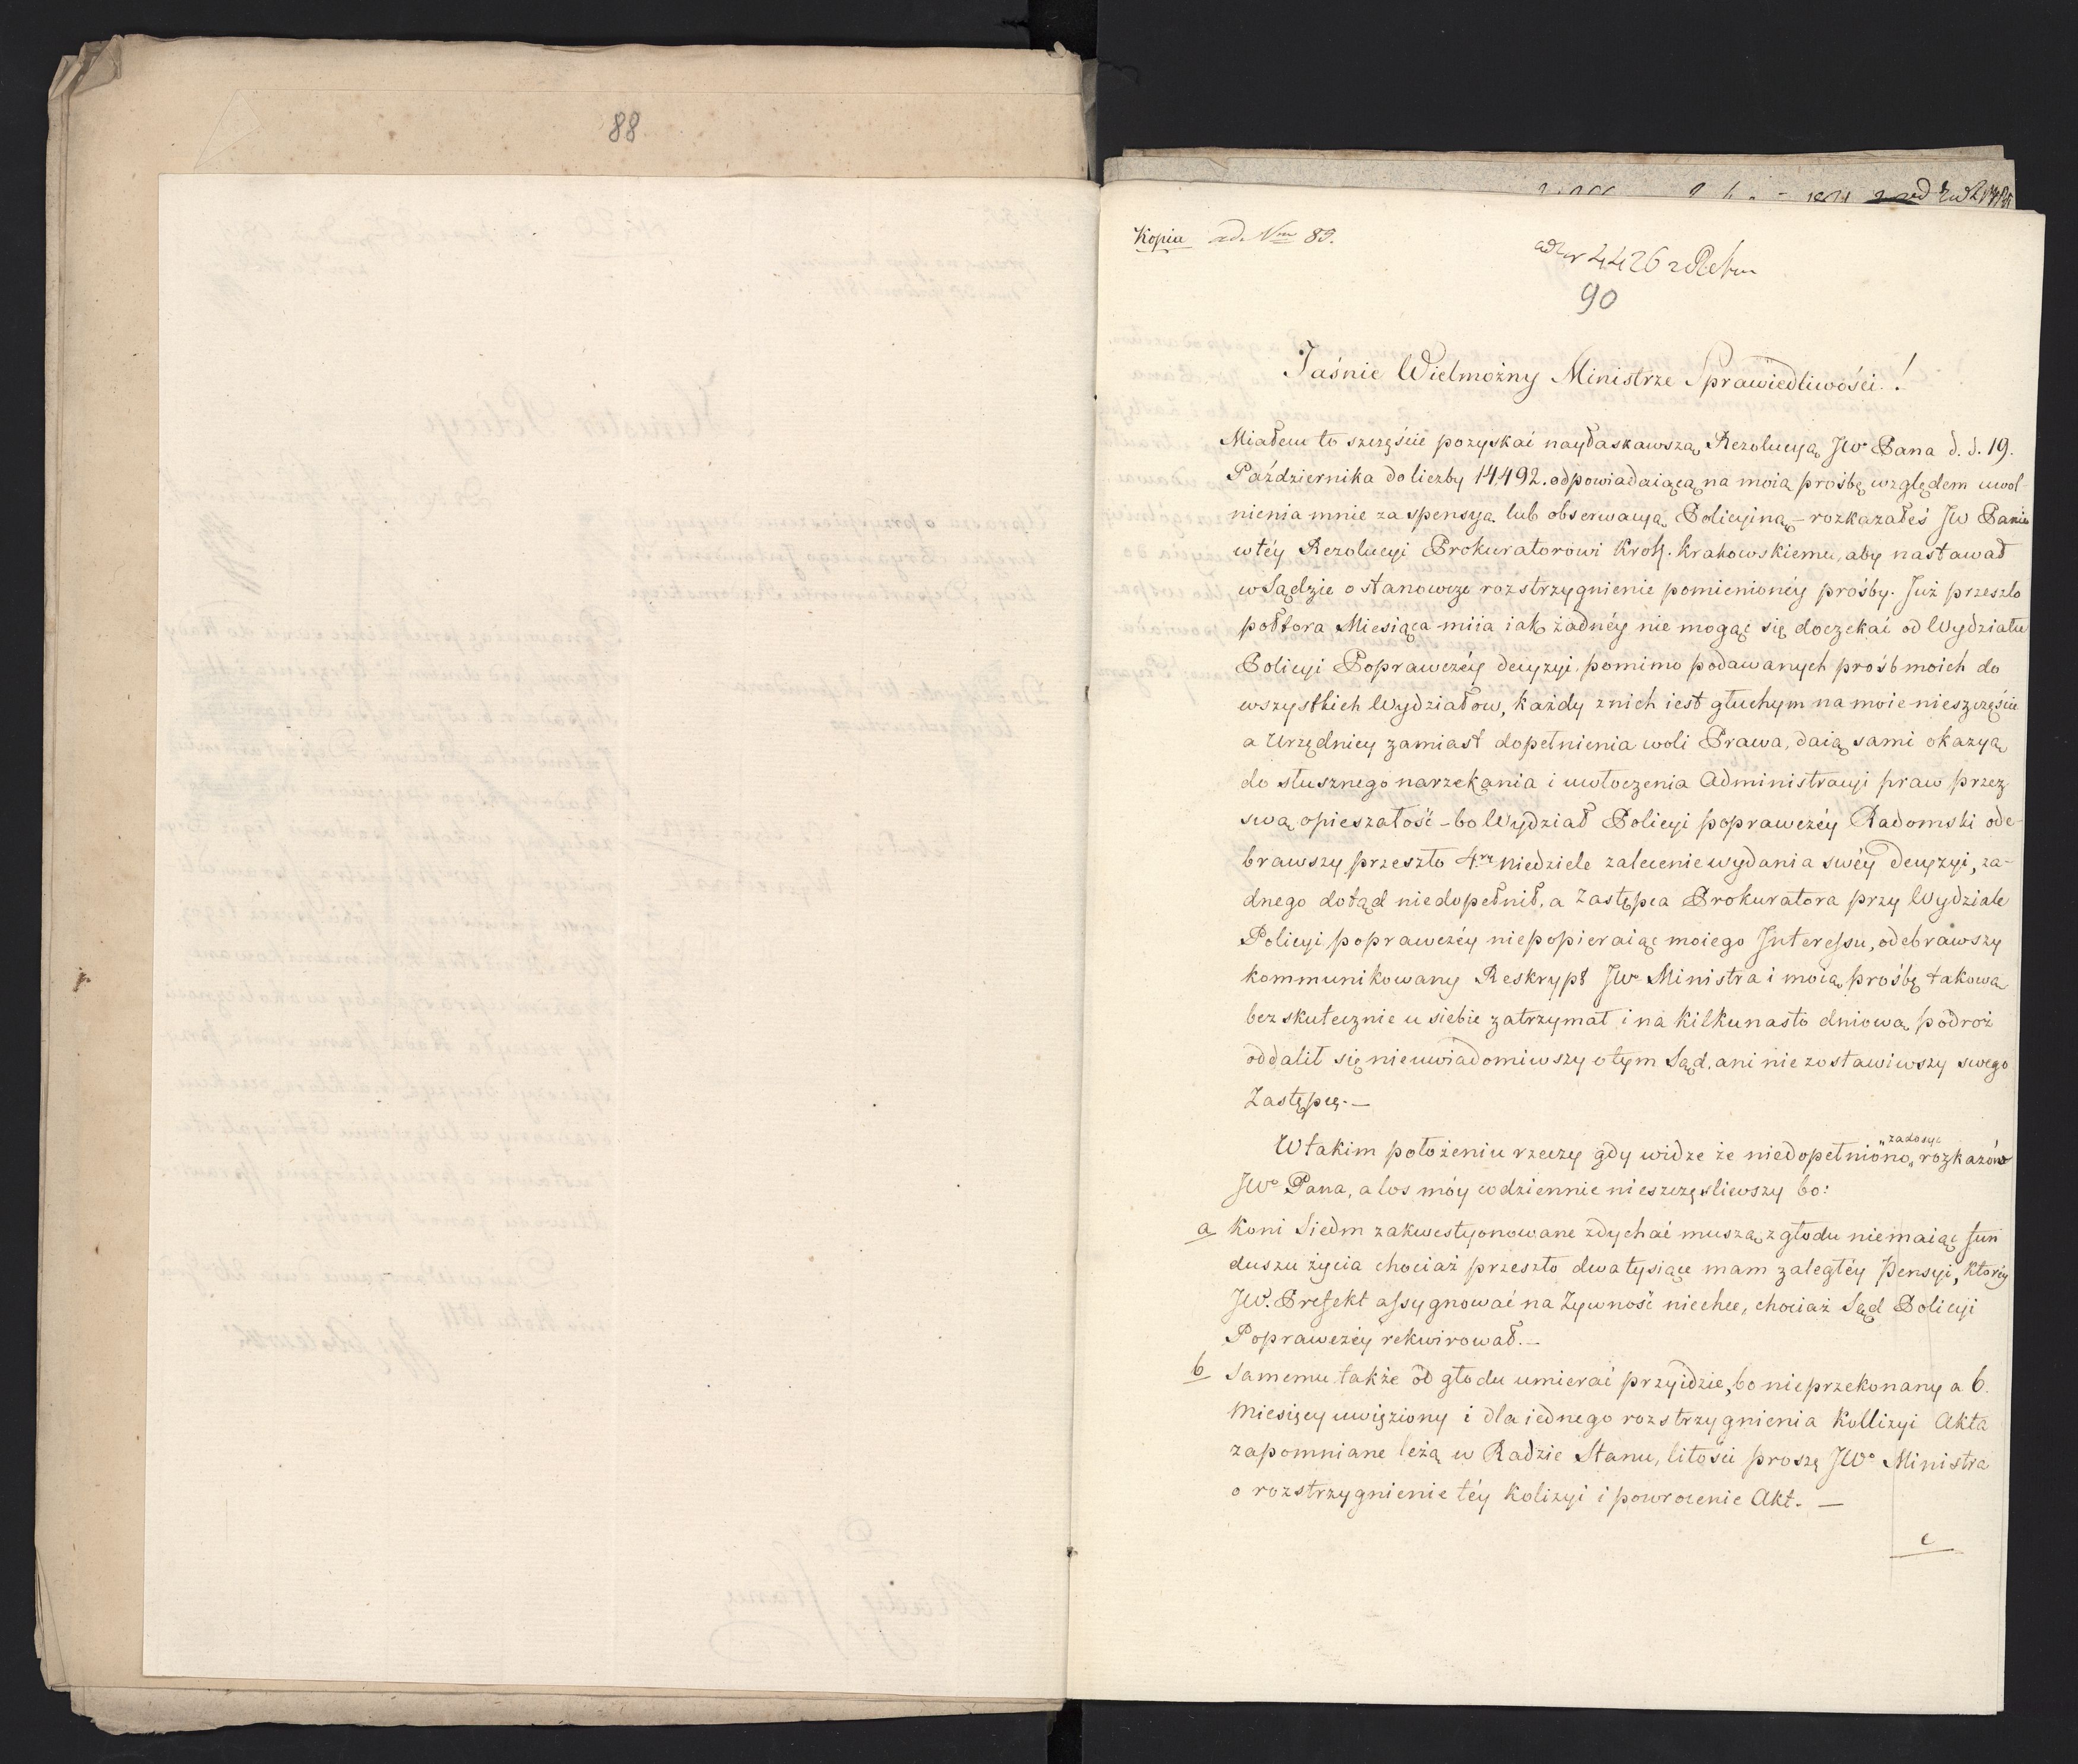 88
Kopia ad Nrm 89.
4426
90
Jaśnie Wielmożny Ministrze Sprawiedliwości!
Miałem to szczęście pozyskać nayłaskawszą Rezolucyą JW Pana d. d. 19.
Października do liczby 14,492. odpowiadaiącą na moią prośbę względem uwol-
nienia mnie za spensyą lub obserwacyą Policyiną – rozkazałeś JW Panie
w téy Rezolucyi Prokuratorowi Krolj. Krakowskiemu, aby nastawał
w Sądzie o stanowcze rozstrzygnienie pomienionéy prośby. Już przeszło
połtora Miesiąca miia iak żadnéy nie mogąc się doczekać od Wydziału
Policyi Poprawczéy decyzyi, pomimo podawanych prośb moich do
wszystkich Wydziałow, każdy z nich iest głuchym na moie nieszczęście
a Urzędnicy zamiast dopełnienia woli Prawa, daią sami okazyą
do słusznego narzekania i uwłoczenia Administracyi praw przez
swą opieszałość – bo Wydział Policyi poprawczéy Radomski ode-
brawszy przeszło 4ry niedziele zalecenie wydania swéy decyzyi, ża-
dnego dotąd niedopełnił, a Zastępca Prokuratora przy Wydziale
Policyi poprawczéy niepopieraiąc moiego Interessu, odebrawszy
kommunikowany Reskrypt JW Ministra i moią prośbę takową
bezskutecznie u siebie zatrzymał i na kilkunasto dniową podroż
oddalił się nieuwiadomiwszy o tym Sąd, ani nie zostawiwszy swego
Zastępcę. —
W takim położeniu rzeczy gdy widze że niedopełniono „zadosyć„ rozkazów
JWo Pana, a los móy codziennie nieszczęsliwszy bo:
a Koni Siedm zakwestyonowane zdychać muszą z głodu niemaiąc fun
duszu życia chociaż przeszło dwatysiące mam zaległéy Pensyi, któréy
JW. Prefekt assygnować na Żywność niechce, chociaż Sąd Policyi
Poprawczéy rekwirował. —
b Samemu także od głodu umierać przyidzie, bo nieprzekonany a 6.
Miesięcy uwięziony i dla iednego rozstrzygnienia Kollizyi Akta
zapomniane leżą w Radzie Stanu, litości proszę JWo Ministra
o rozstrzygnienie téy Kolizyi i powrocenie Akt. —
c